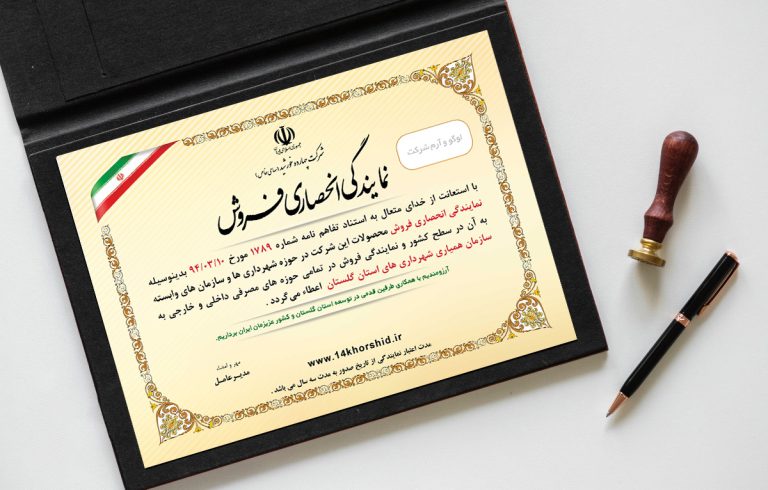 جمهوری اسلامی ایران
شرکت چهارده خورشید (سهامی خاص)
لوگو و آرم شرکت
نمایندگی انحصاری فروش
با استعانت از خدای متعال به استناد تفاهم نامه شماره ۱۷۸۹ مورخ ۹۴/۰۳/۱۰ بدینوسیله
نمایندگی انحصاری فروش محصولات این شرکت در حوزه شهرداری ها و سازمان های وابسته
به آن در سطح کشور و نمایندگی فروش در تمامی حوزه های مصرفی داخلی و خارجی به
سازمان همیاری شهرداری های استان گلستان اعطاء می گردد .
آرزومندیم با همکاری طرفین قدمی در توسعه استان گلستان و کشور عزیزمان ایران برداریم.
www.14khorshid.ir
مدت اعتبار نمایندگی از تاریخ صدور به مدت سه سال می باشد .
مهر و امضاء
مدیرعامل